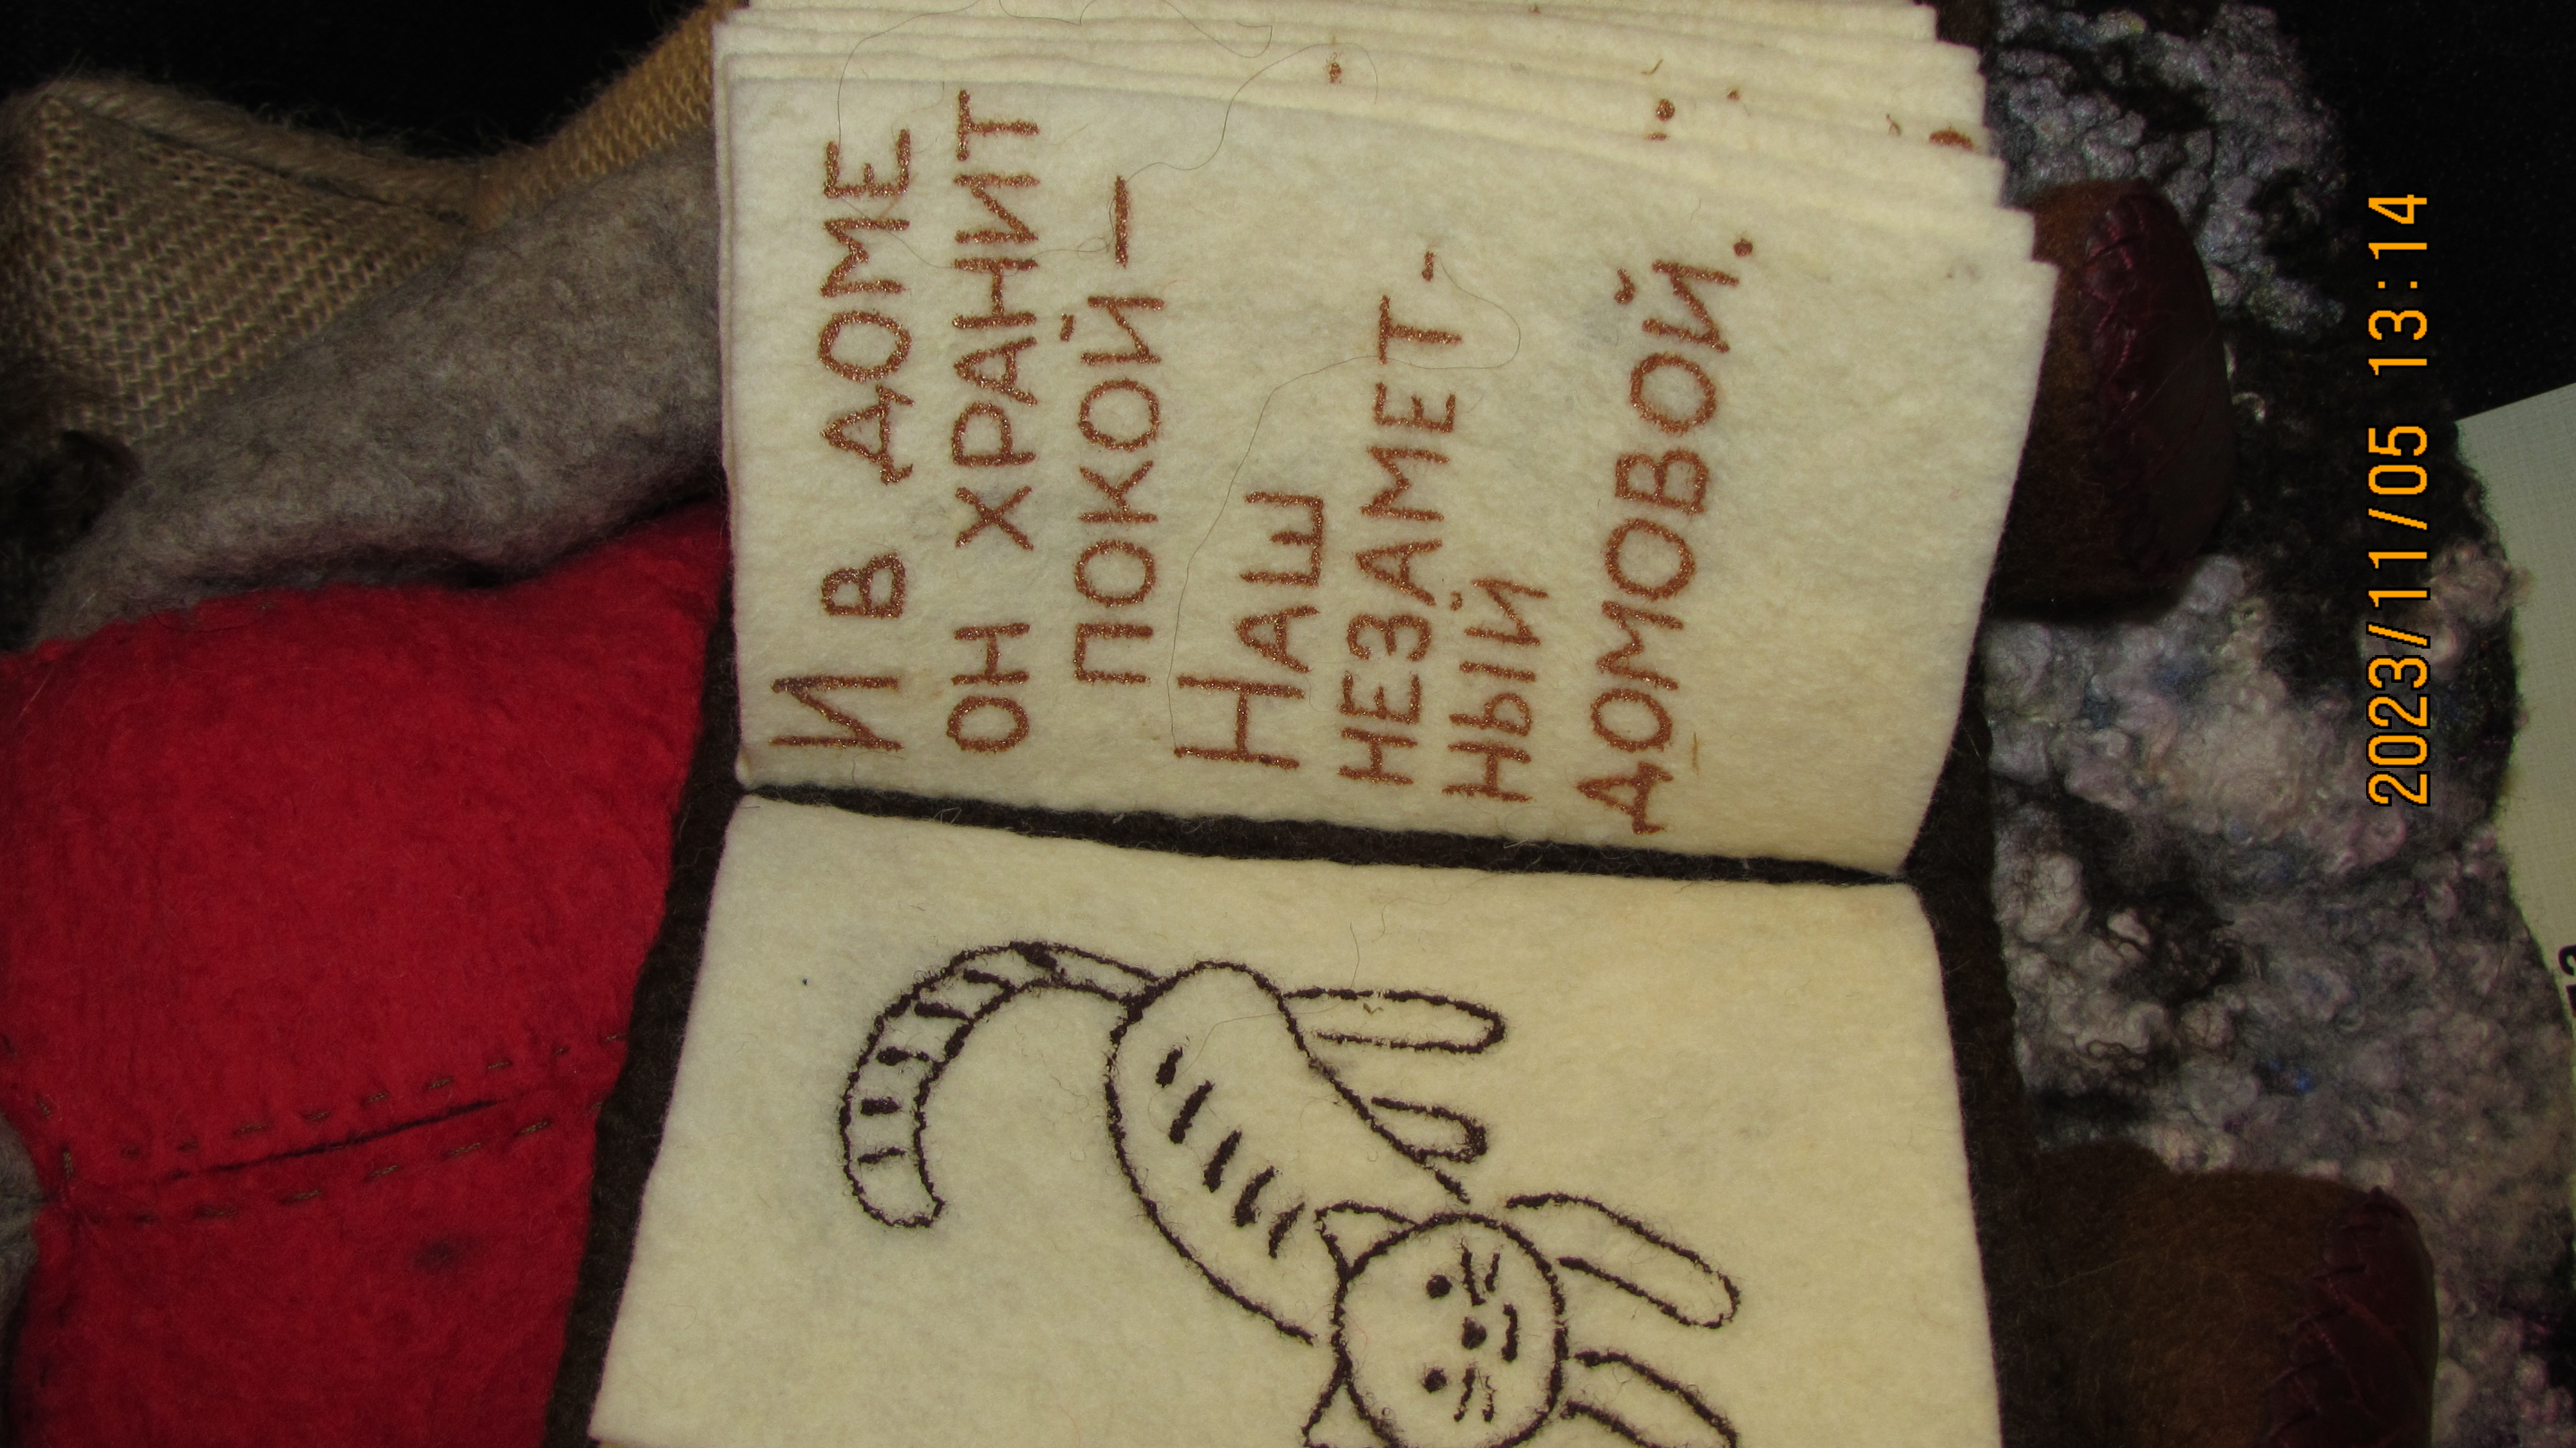 И В ДОМЕ
ОН ХРАНИТ
ПОКОЙ —
НАШ
НЕЗАМЕТ-
НЫЙ
ДОМОВОЙ.
2023/11/05 13:14